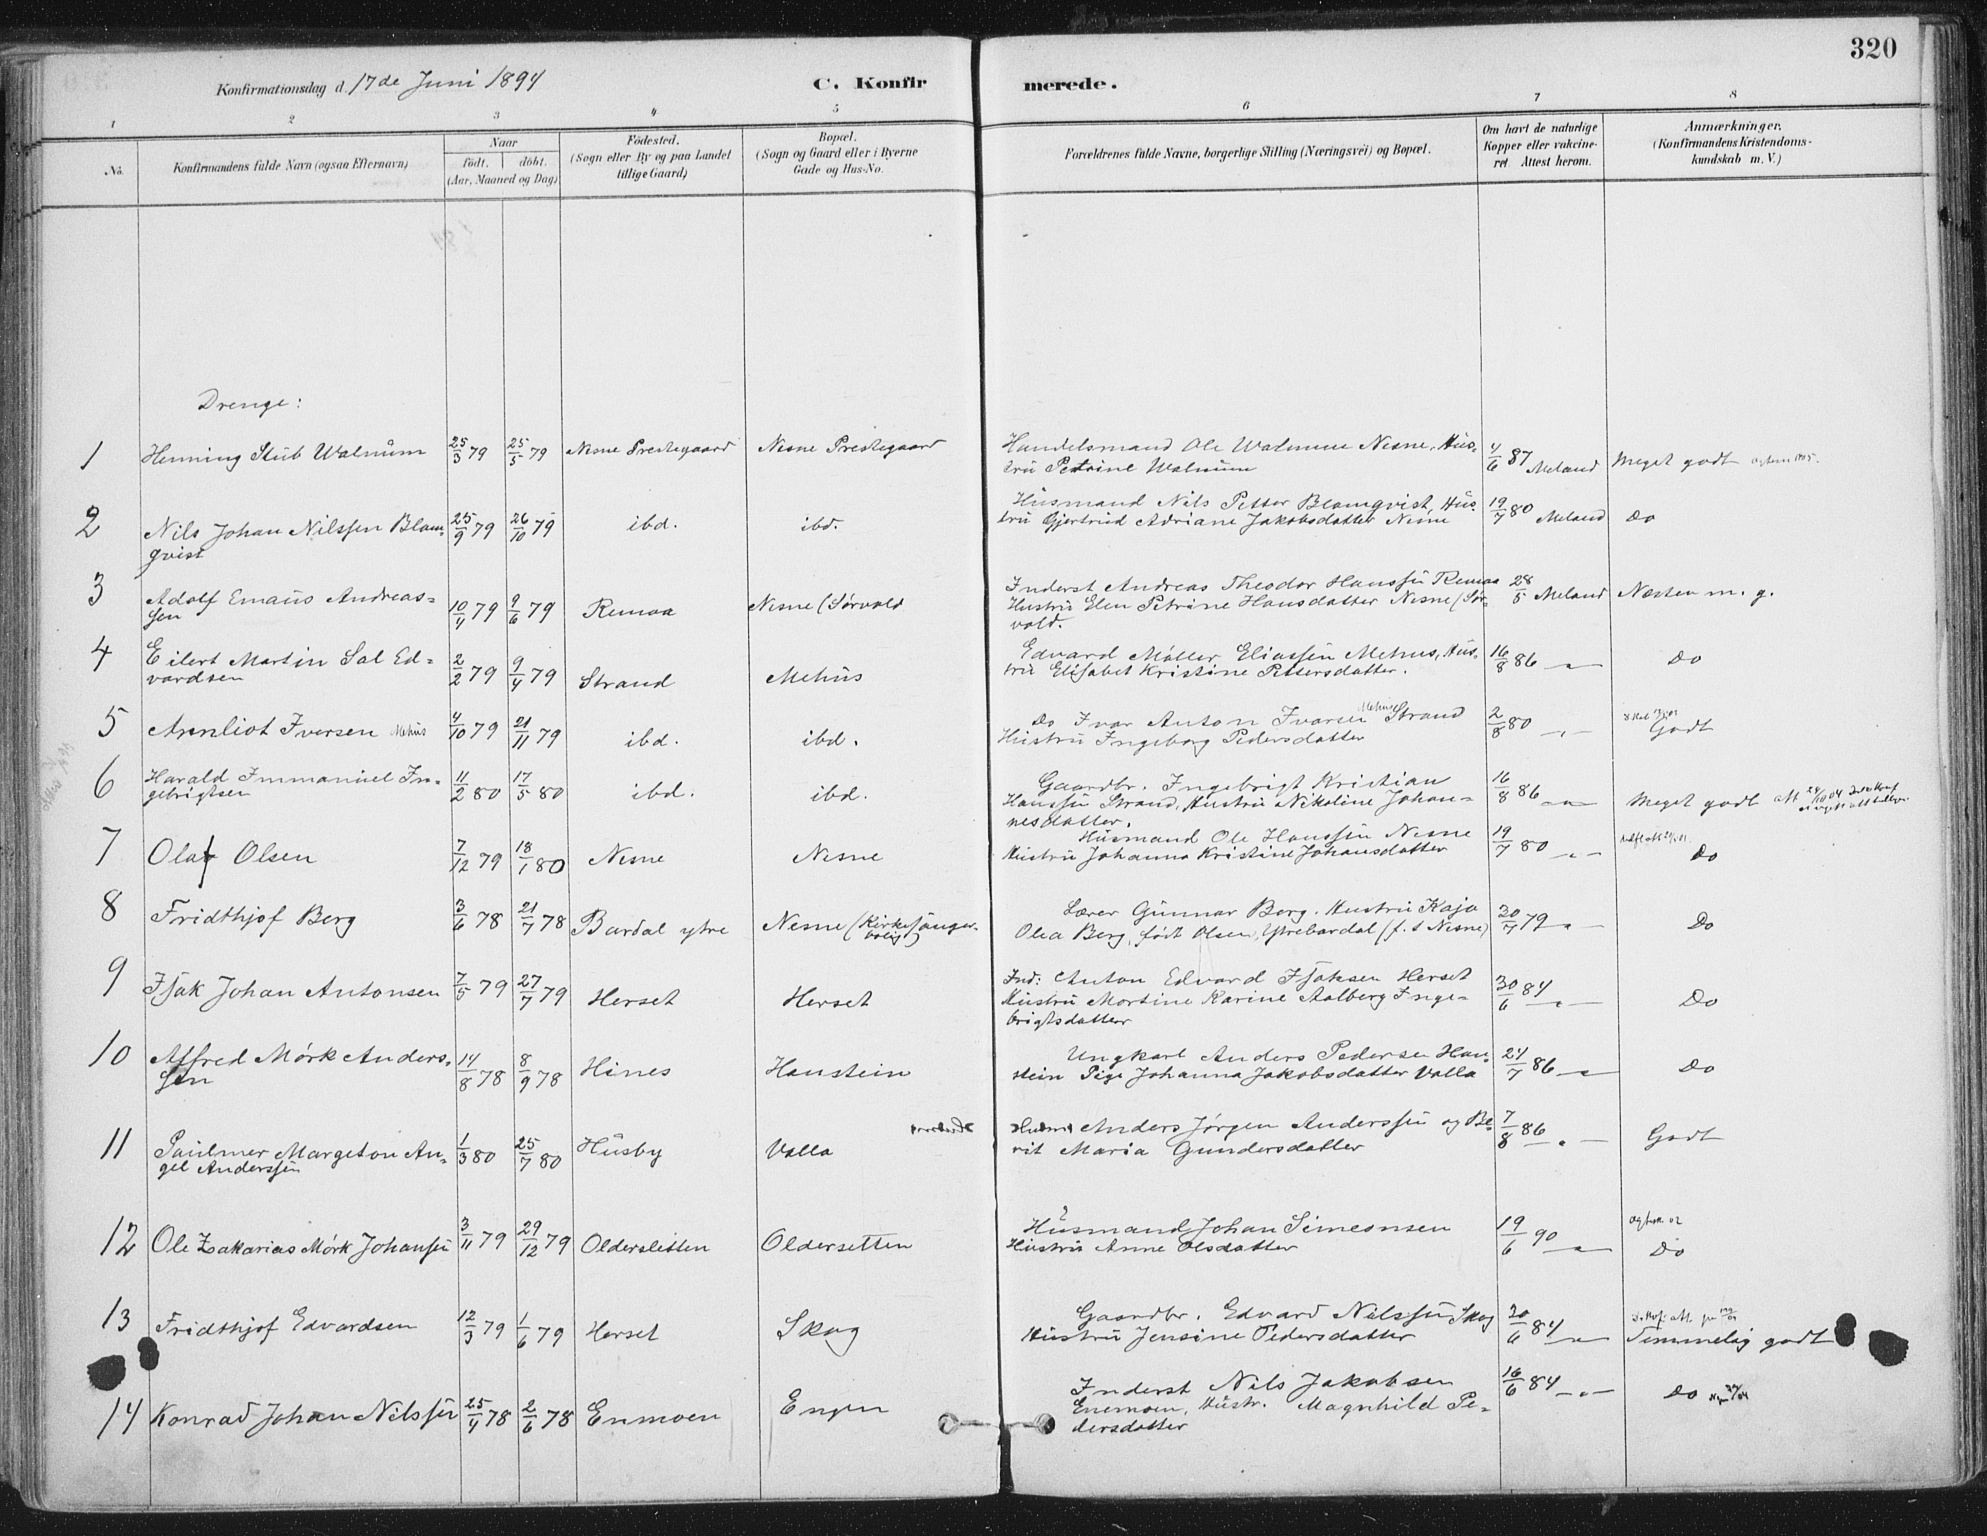 320
Konfirmationsdag d. 17de Juni 1894
C. Konfirmerede.
1 2 3 4 5 6 7 8
No.
Konfirmandens fulde Navn (ogsaa Efternavn)
Naar
født. døbt.
(Aar, Maaned og Dag)
Fødested.
(Sogn eller By og paa Landet
tillige Gaard)
Bopæl.
(Sogn og Gaard eller i Byerne
Gade og Hus-No.
Forældrenes fulde Navne, borgerlige Stilling (Næringsvei) og Bopæl.
Om havt de naturlige
Kopper eller vakcine-
ret. Attest herom.
Anmærkninger.
(Konfirmandens Kristendoms-
kundskab m. V.)
Drenge:
1 Henning Stub Walnùm 25/3 79 25/5 79 Nesne Prestegaard Nesne Prestegaard
Handelsmand Ole Walnum Nesne, Hus-
tru Petrine Walnum 4/6 87 Meland Meget godt
2 Nils Johan Nilssen Blom-
qvist 25/9 79 26/10 79 ibd. ibd.
Husmand Nils Petter Blomqvist, Hus-
tru Gjertrud Adriane Jakobsdatter Nesne 19/7 80 Meland Do
3 Adolf Emaus Andreas-
sen 10/4 79 9/6 79 Remaa Nesne (Sørvold
Inderst Andreas Theodor Hanssen Remaa
Hustru Elen Petrine Hansdatter Nesne (Sør-
vold. 28/5 Meland Næsten m. g.
4 Eilert Martin Sal Ed-
vardsen 2/2 79 9/4 79 Strand Mehus
Edvard Møller Eliassen Mehus, Hus-
tru Elisabet Kristine Pettersdatter. 16/8 86 — „ — Do
5 Arnliot Iversen Mehus 4/10 79 21/11 79 ibd. ibd.
Do Ivar Anton Ivarsen Mehus Strand
Hustru Ingeborg Pedersdatter 2/8 80 — „ — Godt
6 Harald Immanuel In-
gebrigtsen 11/2 80 17/5 80 ibd. ibd.
Gaardbr. Ingebrigt Kristian
Hanssen Strand, Hustru Nikoline Johan-
nesdatter. 16/8 86 — „ — Meget godt
7 Olaf Olsen 7/12 79 18/1 80 Nesne Nesne
Husmand Ole Hanssen Nesne
Hustru Johanna Kristine Johansdatter 19/7 80 — „ — Do
8 Fridthjof Berg 3/6 78 21/7 78 Bardal ytre Nesne (Kirkesanger-
bolig)
Lærer Gunnar Berg. Hustru Kaja
Olea Berg, født Olsen, Ytrebardal (f. t Nesne) 20/7 79 „ Do
9 Isak Johan Antonsen 7/5 79 27/7 79 Herset Herset
Ind: Anton Edvard Isaksen Herset
Hustru Martine Karine Aalberg Inge-
brigtsdatter 30/6 84 — „ — Do
10 Alfred Mørk Anders-
sen 14/8 78 8/9 78 Hines Haustein
Ungkarl Anders Pedersen Hau-
stein Pige Johanna Jakobsdatter Valla 24/7 86 — „ Do
11 Paulmer Margeton An-
gel Anderssen 1/3 80 25/7 80 Husby Valla
Anders Jørgen Anderssen og Be-
rit Maria Gundersdatter 7/8 86 — „ — Godt
12 Ole Zakarias Mørk Johansen 3/11 79 29/12 79 Oldersletten Oldersetten
Husmand Johan Simeonsen
Hustru Anne Olsdatter 19/6 90 — „ — Do
13 Fridthjof Edvardsen 12/3 79 1/6 79 Herset Skog
Gaardbr. Edvard Nilssen Skog
Hustru Jensine Pedersdatter 20/6 84 — „ — Temmelig godt
14 Konrad Johan Nilssen 25/4 78 2/6 78 Enmoen Engen
Inderst Nils Jakobsen
Enemoen, Hustr. Magnhild Pe-
dersdatter 16/6 84 — „ — Do